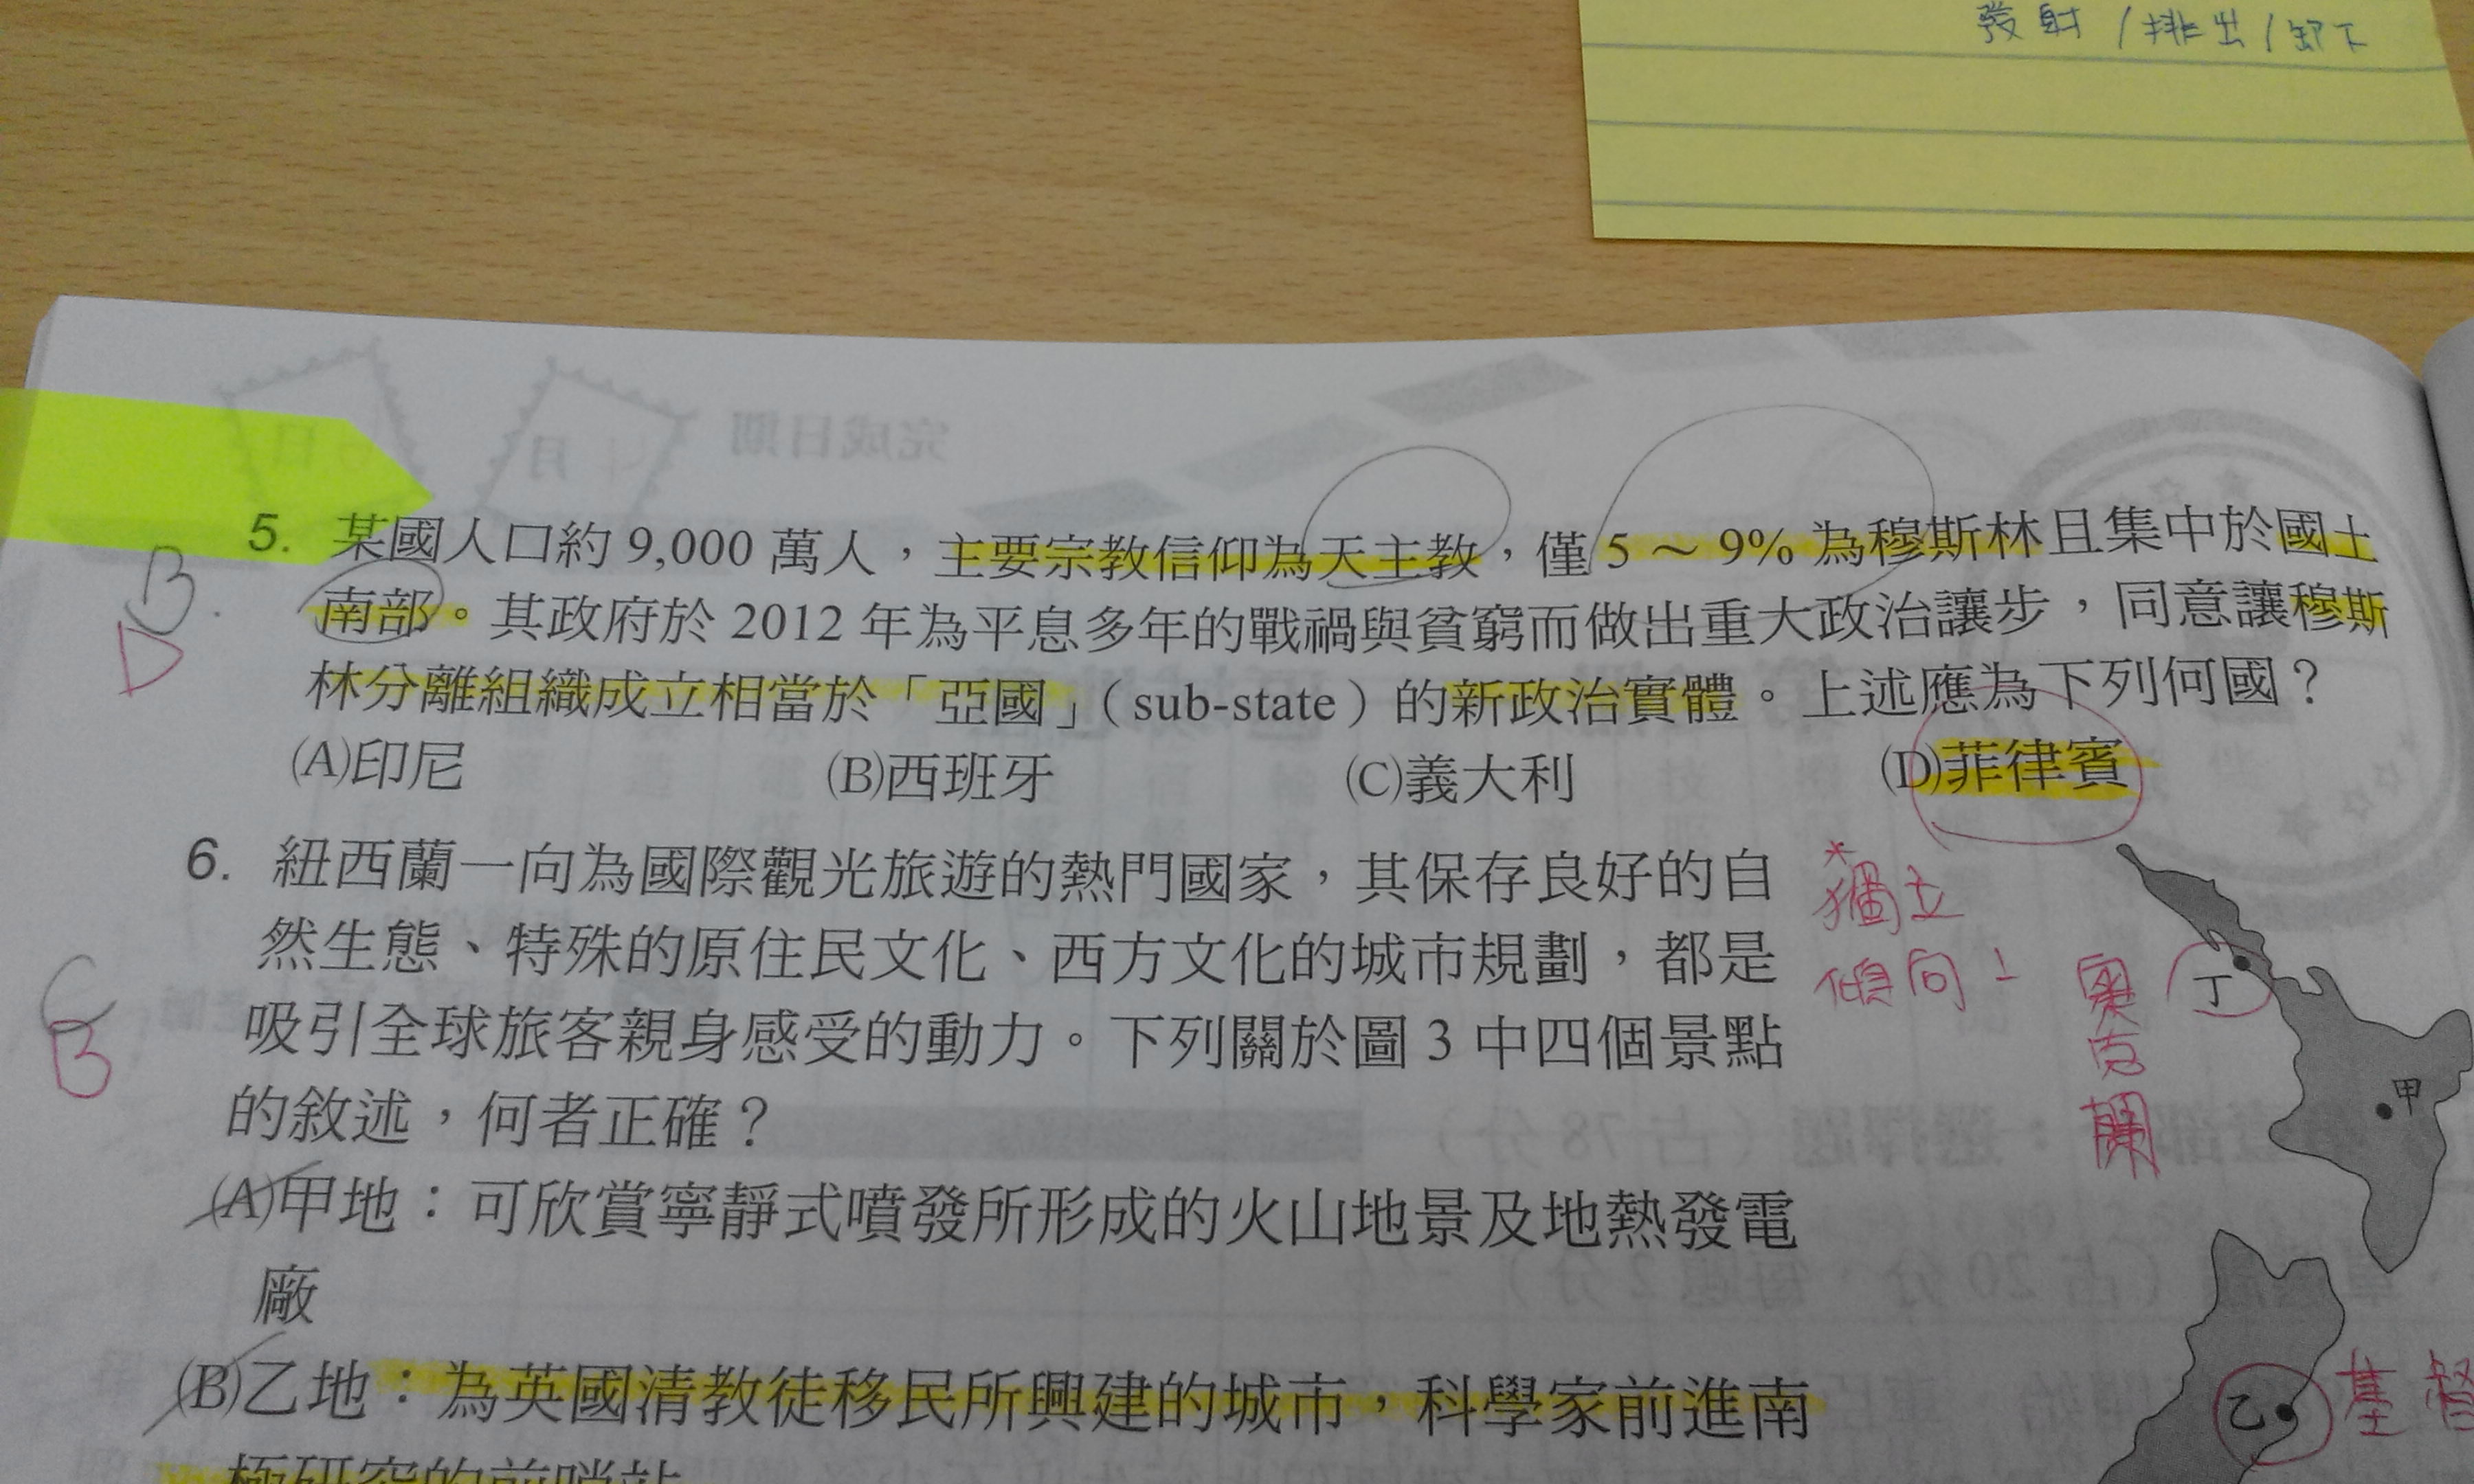 發射/排出/卸下
完成日期
月
日
5. 某國人口約 9,000 萬人，主要宗教信仰為天主教，僅 5 ～ 9% 為穆斯林且集中於國土
B.
南部。其政府於 2012 年為平息多年的戰禍與貧窮而做出重大政治讓步，同意讓穆斯
D
林分離組織成立相當於「亞國」（sub-state）的新政治實體。上述應為下列何國？
(A)印尼 (B)西班牙 (C)義大利 (D)菲律賓
6. 紐西蘭一向為國際觀光旅遊的熱門國家，其保存良好的自
然生態、特殊的原住民文化、西方文化的城市規劃，都是
C
吸引全球旅客親身感受的動力。下列關於圖 3 中四個景點
B
的敘述，何者正確？
(A)甲地：可欣賞寧靜式噴發所形成的火山地景及地熱發電
廠
(B)乙地：為英國清教徒移民所興建的城市，科學家前進南
極研究的前哨站
*
獨立
傾向
奧克蘭
丁
甲
乙
基督